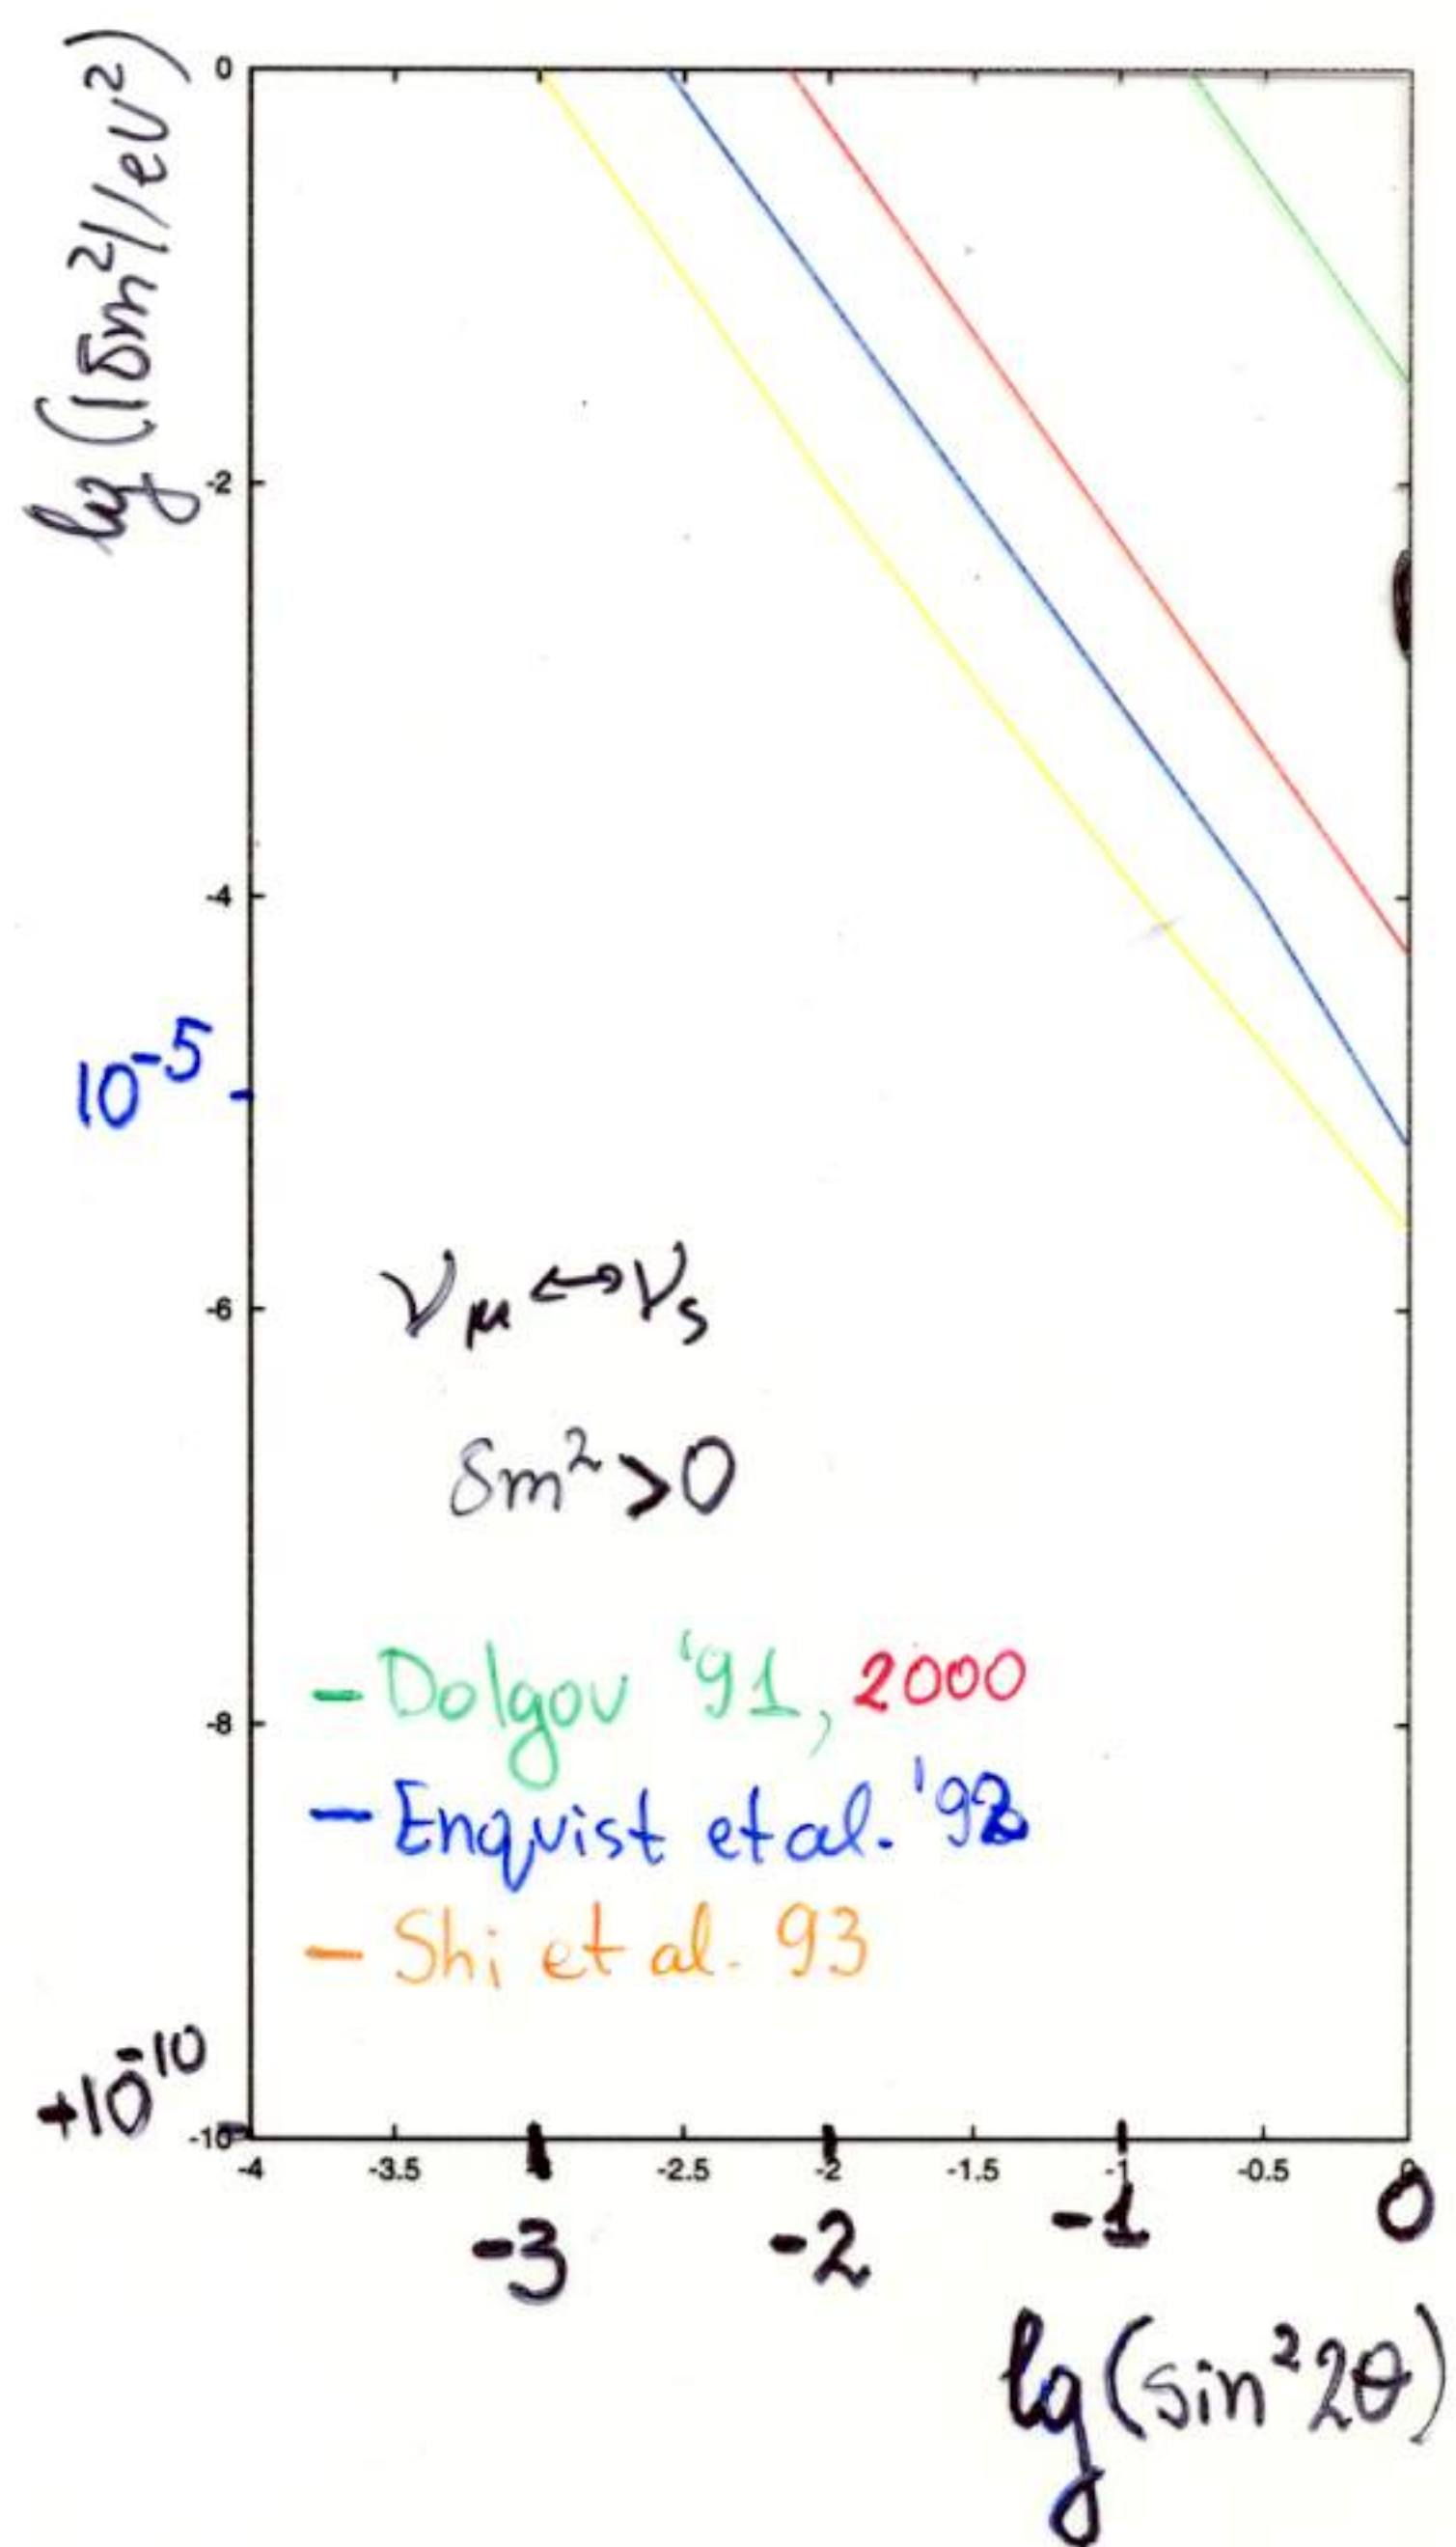 lg(|δm²|/eV²)
0
-2
-4
10⁻⁵
-6
ν_μ ↔ ν_s
δm² > 0
- Dolgov '91, 2000
-8
- Enqvist et al. '92
- Shi et al. 93
+10⁻¹⁰
-10
-4 -3.5 -2.5 -2 -1.5 -1 -0.5 0
-3 -2 -1 0
lg(sin²2θ)